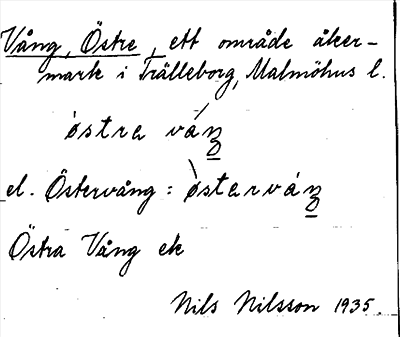 Vång, Östre, ett område åker-
mark i Trälleborg, Malmöhus l.
östra váŋ
el. Östervång: östərváŋ
Östra Vång ek
Nils Nilsson 1935.